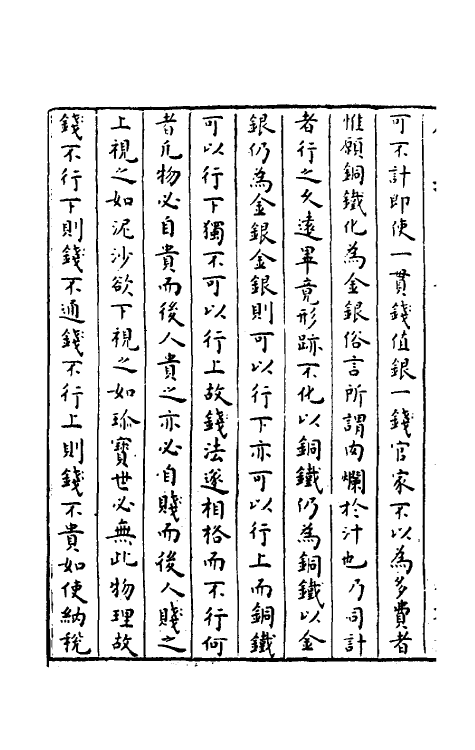 可不計即使一貫錢值銀一錢官家不以為多費者
惟願銅鐵化為金銀俗言所謂肉爛於汁也乃司計
者行之久遠畢竟形跡不化以銅鐵仍為銅鐵以金
銀仍為金銀金銀則可以行下亦可以行上而銅鐵
可以行下獨不可以行上故錢法遂相格而不行何
者凡物必自貴而後人貴之亦必自賤而後人賤之
上視之如泥沙欲下視之如珍寶世必無此物理故
錢不行下則錢不通錢不行上則錢不貴如使納稅